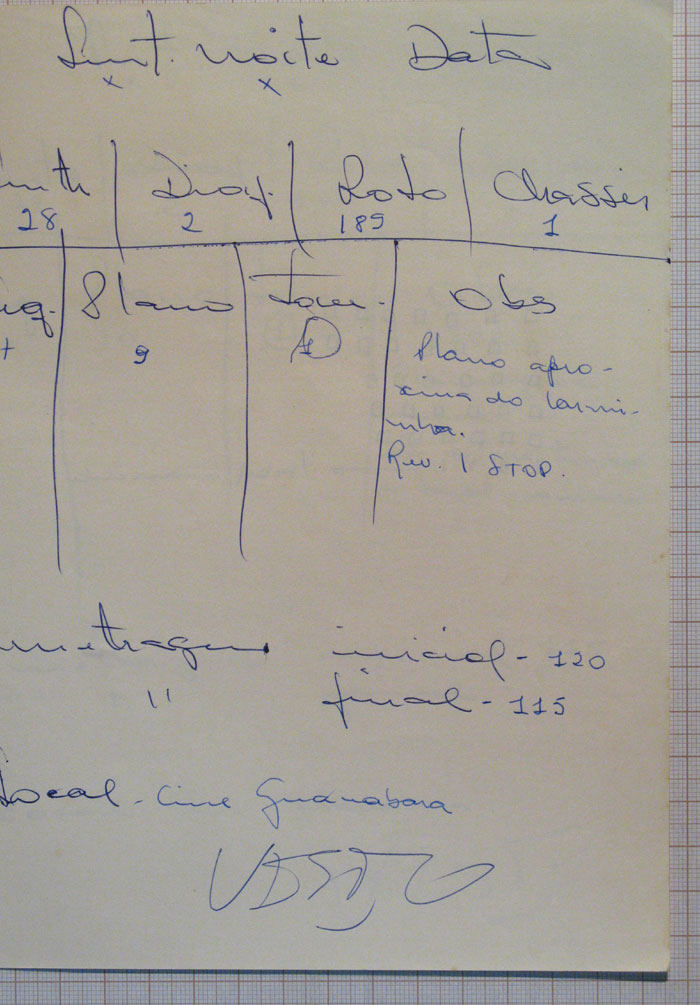 noite Data
x x
Diaf. Roto Chassis
28 2 185 1
Plano Tom. Obs
9 1
Plano apro-
xima do lormi-
nha.
Rev. 1 STOP.
metragem inicial - 120
" final - 115
Local - Cine Guanabara